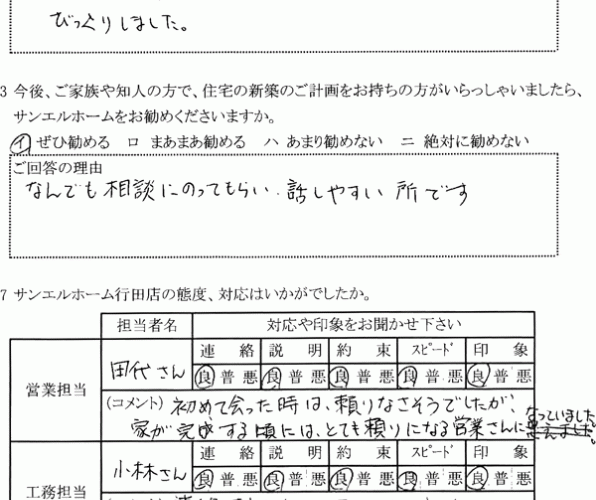 びっくりしました。
3 今後、ご家族や知人の方で、住宅の新築のご計画をお持ちの方がいらっしゃいましたら、
サンエルホームをお勧めくださいますか。
イ ぜひ勧める ロ まあまあ勧める ハ あまり勧めない ニ 絶対に勧めない
ご回答の理由
なんでも相談にのってもらい、話しやすい所です
7 サンエルホーム行田店の態度、対応はいかがでしたか。
担当者名 対応や印象をお聞かせ下さい
営業担当 田代さん 連絡 説明 約束 スピード 印象
良 普 悪 良 普 悪 良 普 悪 良 普 悪 良 普 悪
(コメント) 初めて会った時は、頼りなさそうでしたが、
家が完成する頃には、とても頼りになる営業さんになっていました。
工務担当 小林さん 連絡 説明 約束 スピード 印象
良 普 悪 良 普 悪 良 普 悪 良 普 悪 良 普 悪